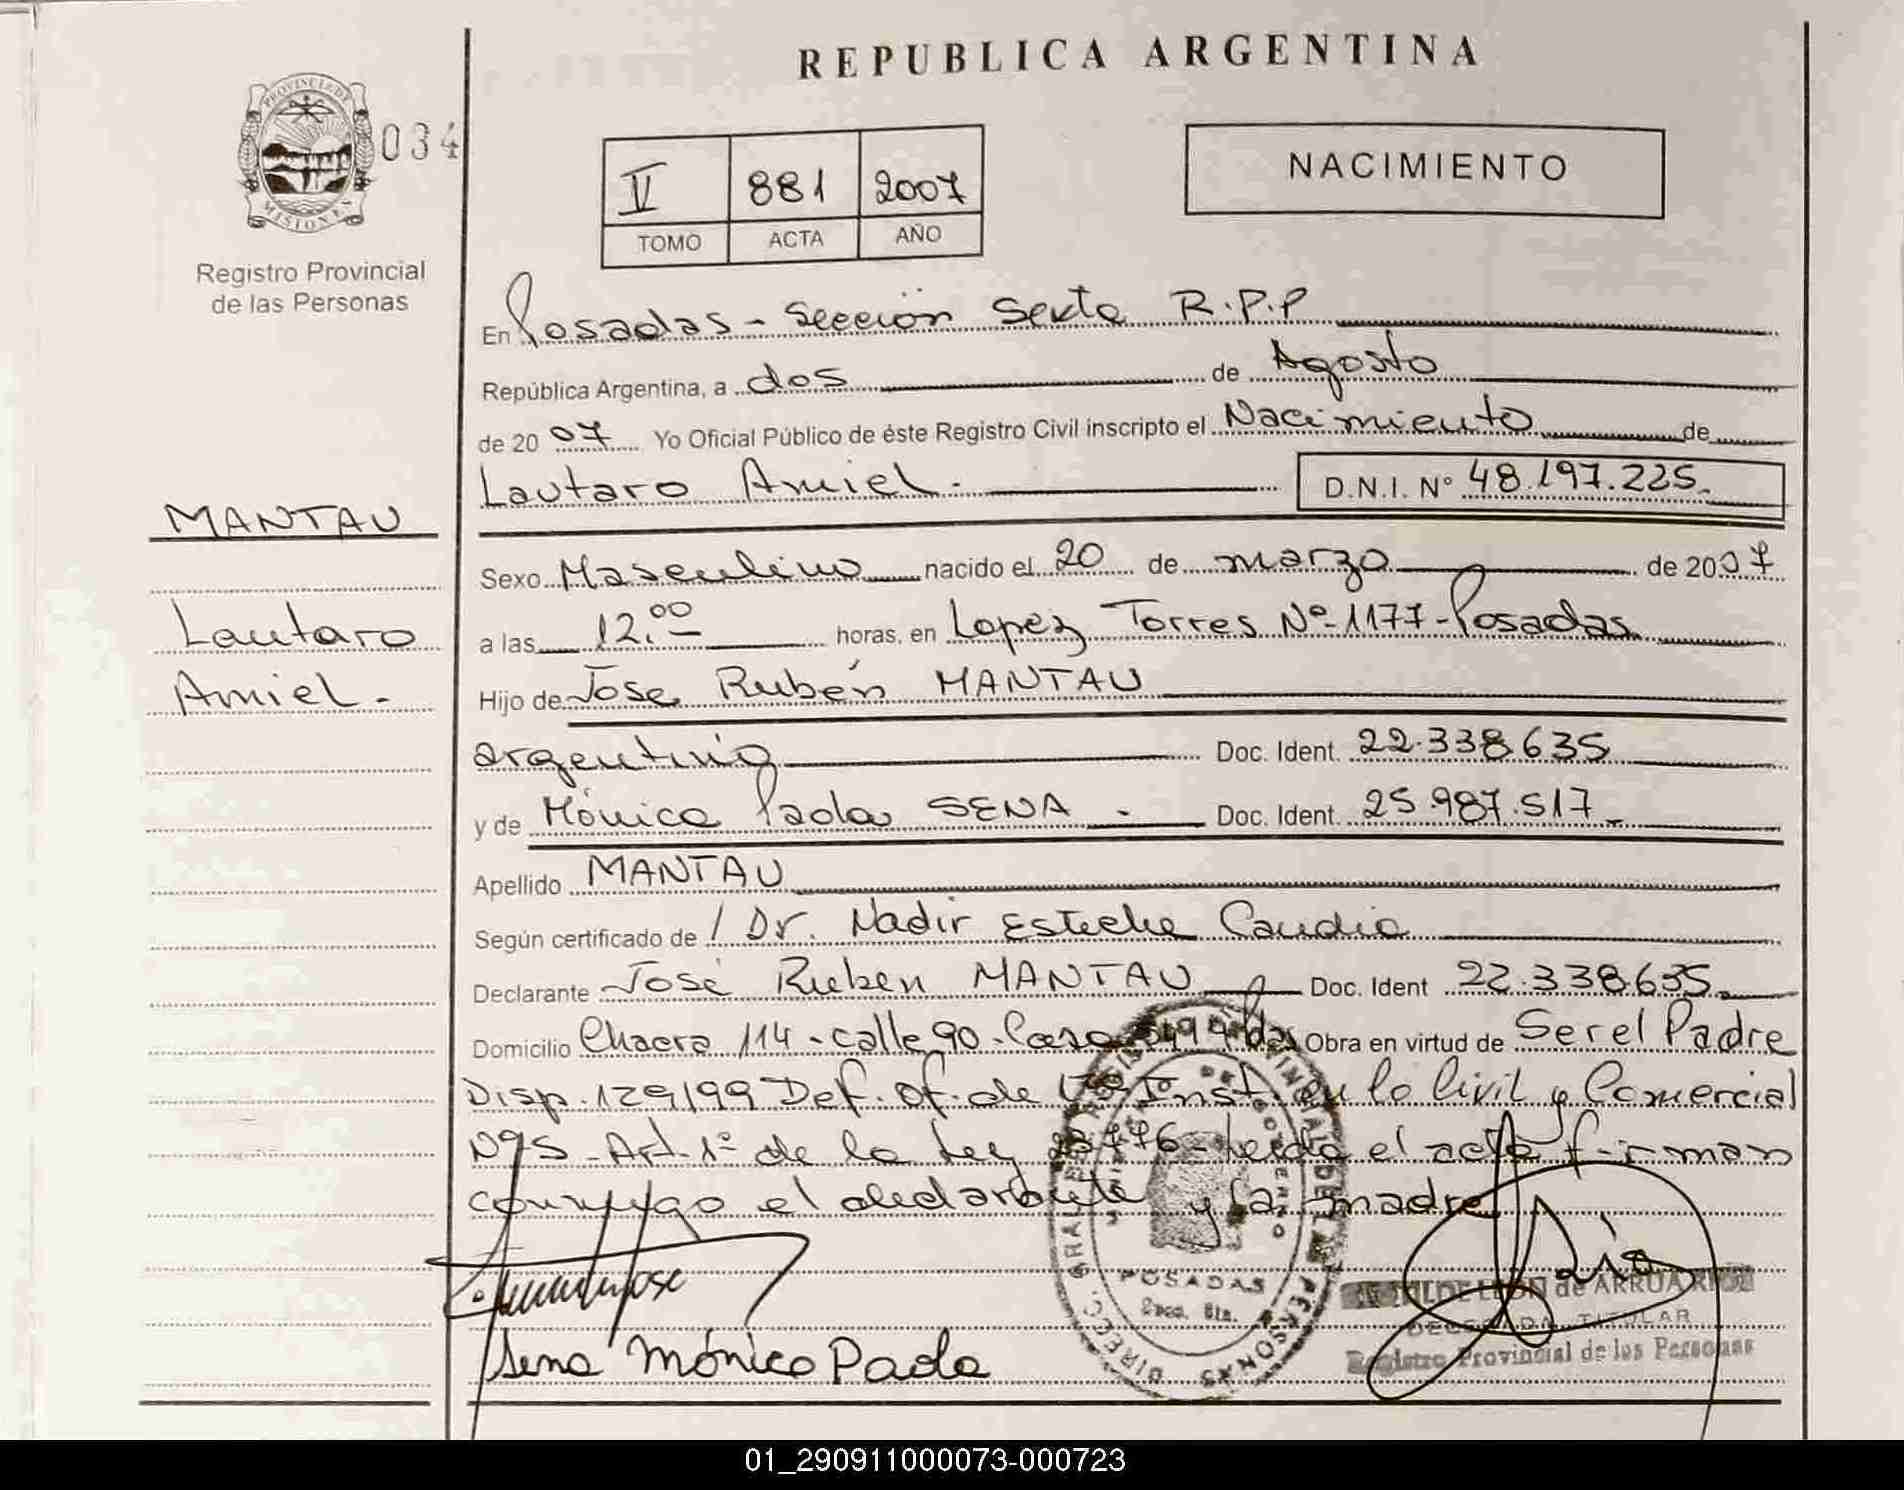 REPUBLICA ARGENTINA
PROVINCIA DE
MISIONES
034
Registro Provincial
de las Personas
II 881 2007
TOMO ACTA AÑO
NACIMIENTO
En Posadas - Sección Sexta R.P.P
República Argentina, a dos de Agosto
de 2007 Yo Oficial Público de éste Registro Civil inscripto el Nacimiento de
Lautaro Amiel. D.N.I. Nº 48.197.225.
MANTAU
Lautaro
Amiel.-
Sexo Masculino nacido el 20 de marzo de 2007
a las 12.00 horas, en Lopez Torres Nº 1177 - Posadas
Hijo de Jose Rubén MANTAU
argentino Doc. Ident. 22.338.635
y de Mónica Paola SENA - Doc. Ident. 25.987.517
Apellido MANTAU
Según certificado de / Dr. Nadir Esteche Claudio
Declarante José Ruben MANTAU Doc. Ident 22.338.635
Domicilio Chacra 114 - calle 90 - Casa Pdas Obra en virtud de Ser el Padre
Disp. 129/99 Def. Of. de 1º Inst. en lo Civil y Comercial
Nº5 - Art. 1º de la Ley leída el acta firman
conmigo el declarante y la madre
Jose
Sena Mónica Paola
POSADAS
Secc. 6ta.
DE LEON de ARRUA
DELEGADA TITULAR
Registro Provincial de las Personas
01_290911000073-000723